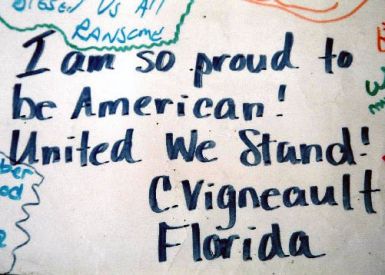 Us All
RANSOME
I am so proud to
be American!
United We Stand!
C. Vigneault
Florida